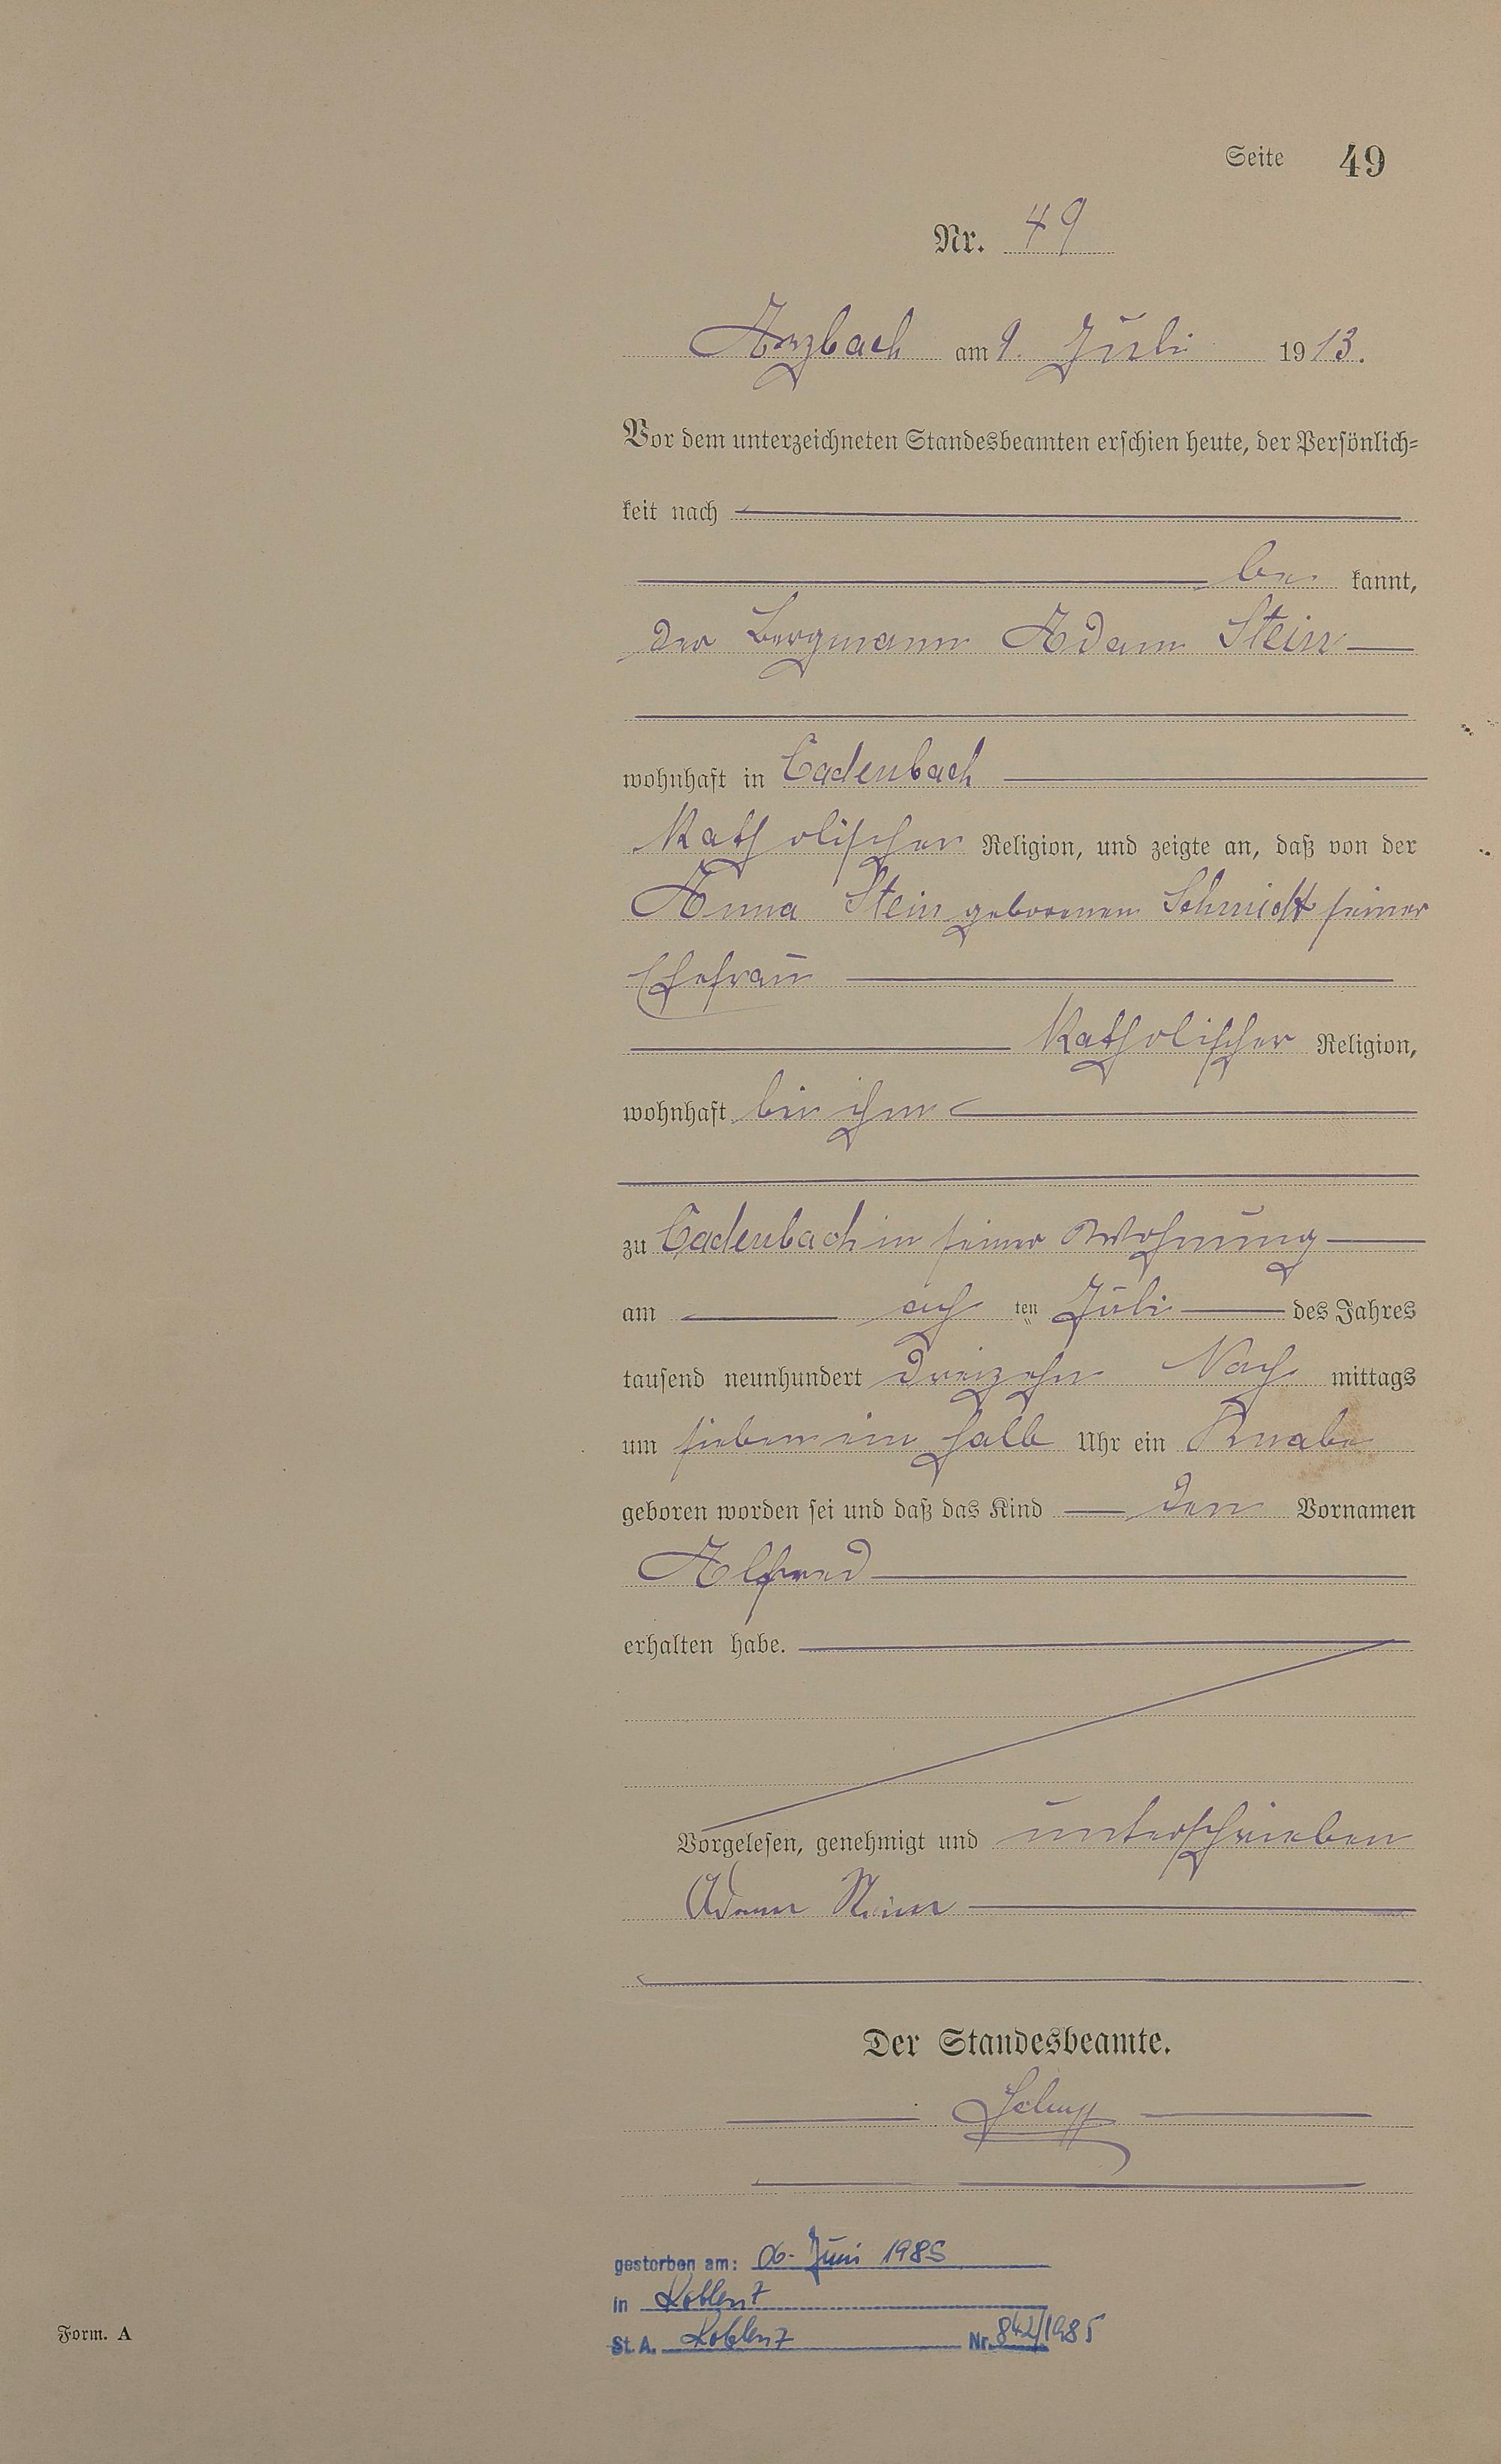 Seite 49
Nr. 49
Arzbach am 9. Juli 1913.
Vor dem unterzeichneten Standesbeamten erschien heute, der Persönlich=
keit nach
be kannt,
der Bergmann Adam Stein
wohnhaft in Cadenbach
katholischer Religion, und zeigte an, daß von der
Anna Stein geborenen Schmidt seiner
Ehefrau
katholischer Religion,
wohnhaft bei ihm
zu Cadenbach in seiner Wohnung
am ach ten Juli des Jahres
tausend neunhundert dreizehn Nach mittags
um sieben ein halb Uhr ein Knabe
geboren worden sei und daß das Kind den Vornamen
Alfred
erhalten habe.
Vorgelesen, genehmigt und unterschrieben
Adam Stein
Der Standesbeamte.
gestorben am: 06. Juni 1985
in Koblenz
St. A. Koblenz Nr. 842/1985
Form. A